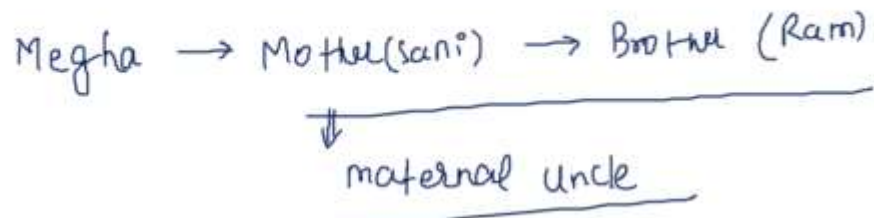 Megha → Mother(sani) → Brother (Ram)
⇓
maternal uncle